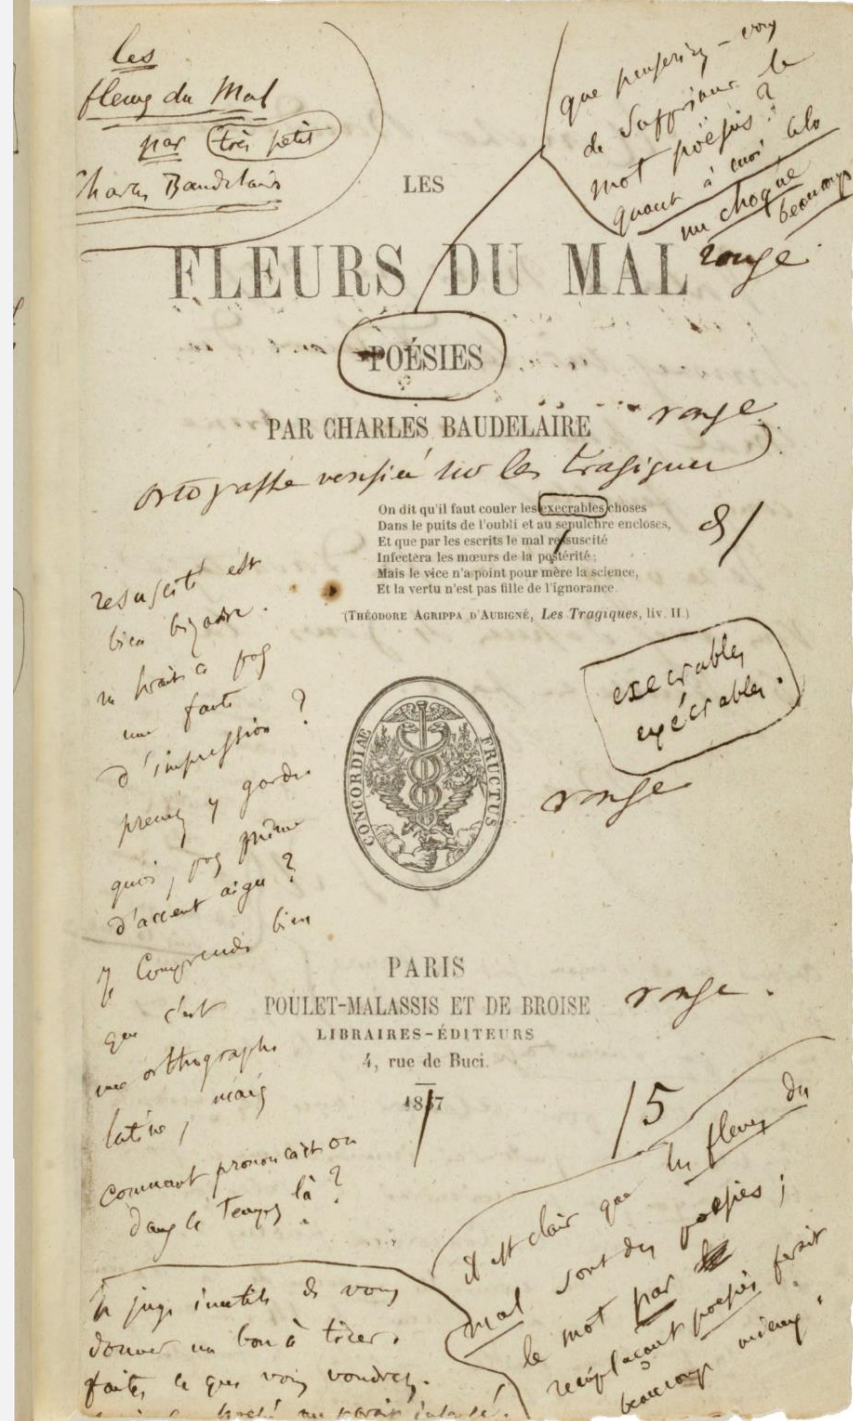 les
fleurs du Mal
par très petit
Charles Baudelaire
que penseriez-vous
de supprimer le
mot poésies?
quant à moi cela
me choque
beaucoup
LES
FLEURS DU MAL
rouge.
POÉSIES
PAR CHARLES BAUDELAIRE
rouge
ortografhe vérifiée sur les tragiques
On dit qu'il faut couler les execrables choses
Dans le puits de l'oubli et au sepulchre encloses,
Et que par les escrits le mal resuscité
Infectera les mœurs de la postérité;
Mais le vice n'a point pour mère la science,
Et la vertu n'est pas fille de l'ignorance.
(THÉODORE AGRIPPA D'AUBIGNÉ, Les Tragiques, liv. II.)
resuscité est
bien bizarre.
ne serait-ce pas
une faute
d'impression?
prenez y garde.
quoi, pas même
d'accent aigu?
Je comprends bien
que c'est
une orthographe
latine, mais
comment prononçait-on
dans ce temps là?
execrables
exécrables.
rouge
CONCORDIAE FRUCTUS
PARIS
POULET-MALASSIS ET DE BROISE
rouge.
LIBRAIRES-ÉDITEURS
4, rue de Buci.
1857
/5
il est clair que les fleurs du
mal sont des poésies;
le mot par
remplaçant poésies ferait
beaucoup mieux.
Je juge inutile de vous
donner un bon à tirer.
faites ce que vous voudrez.